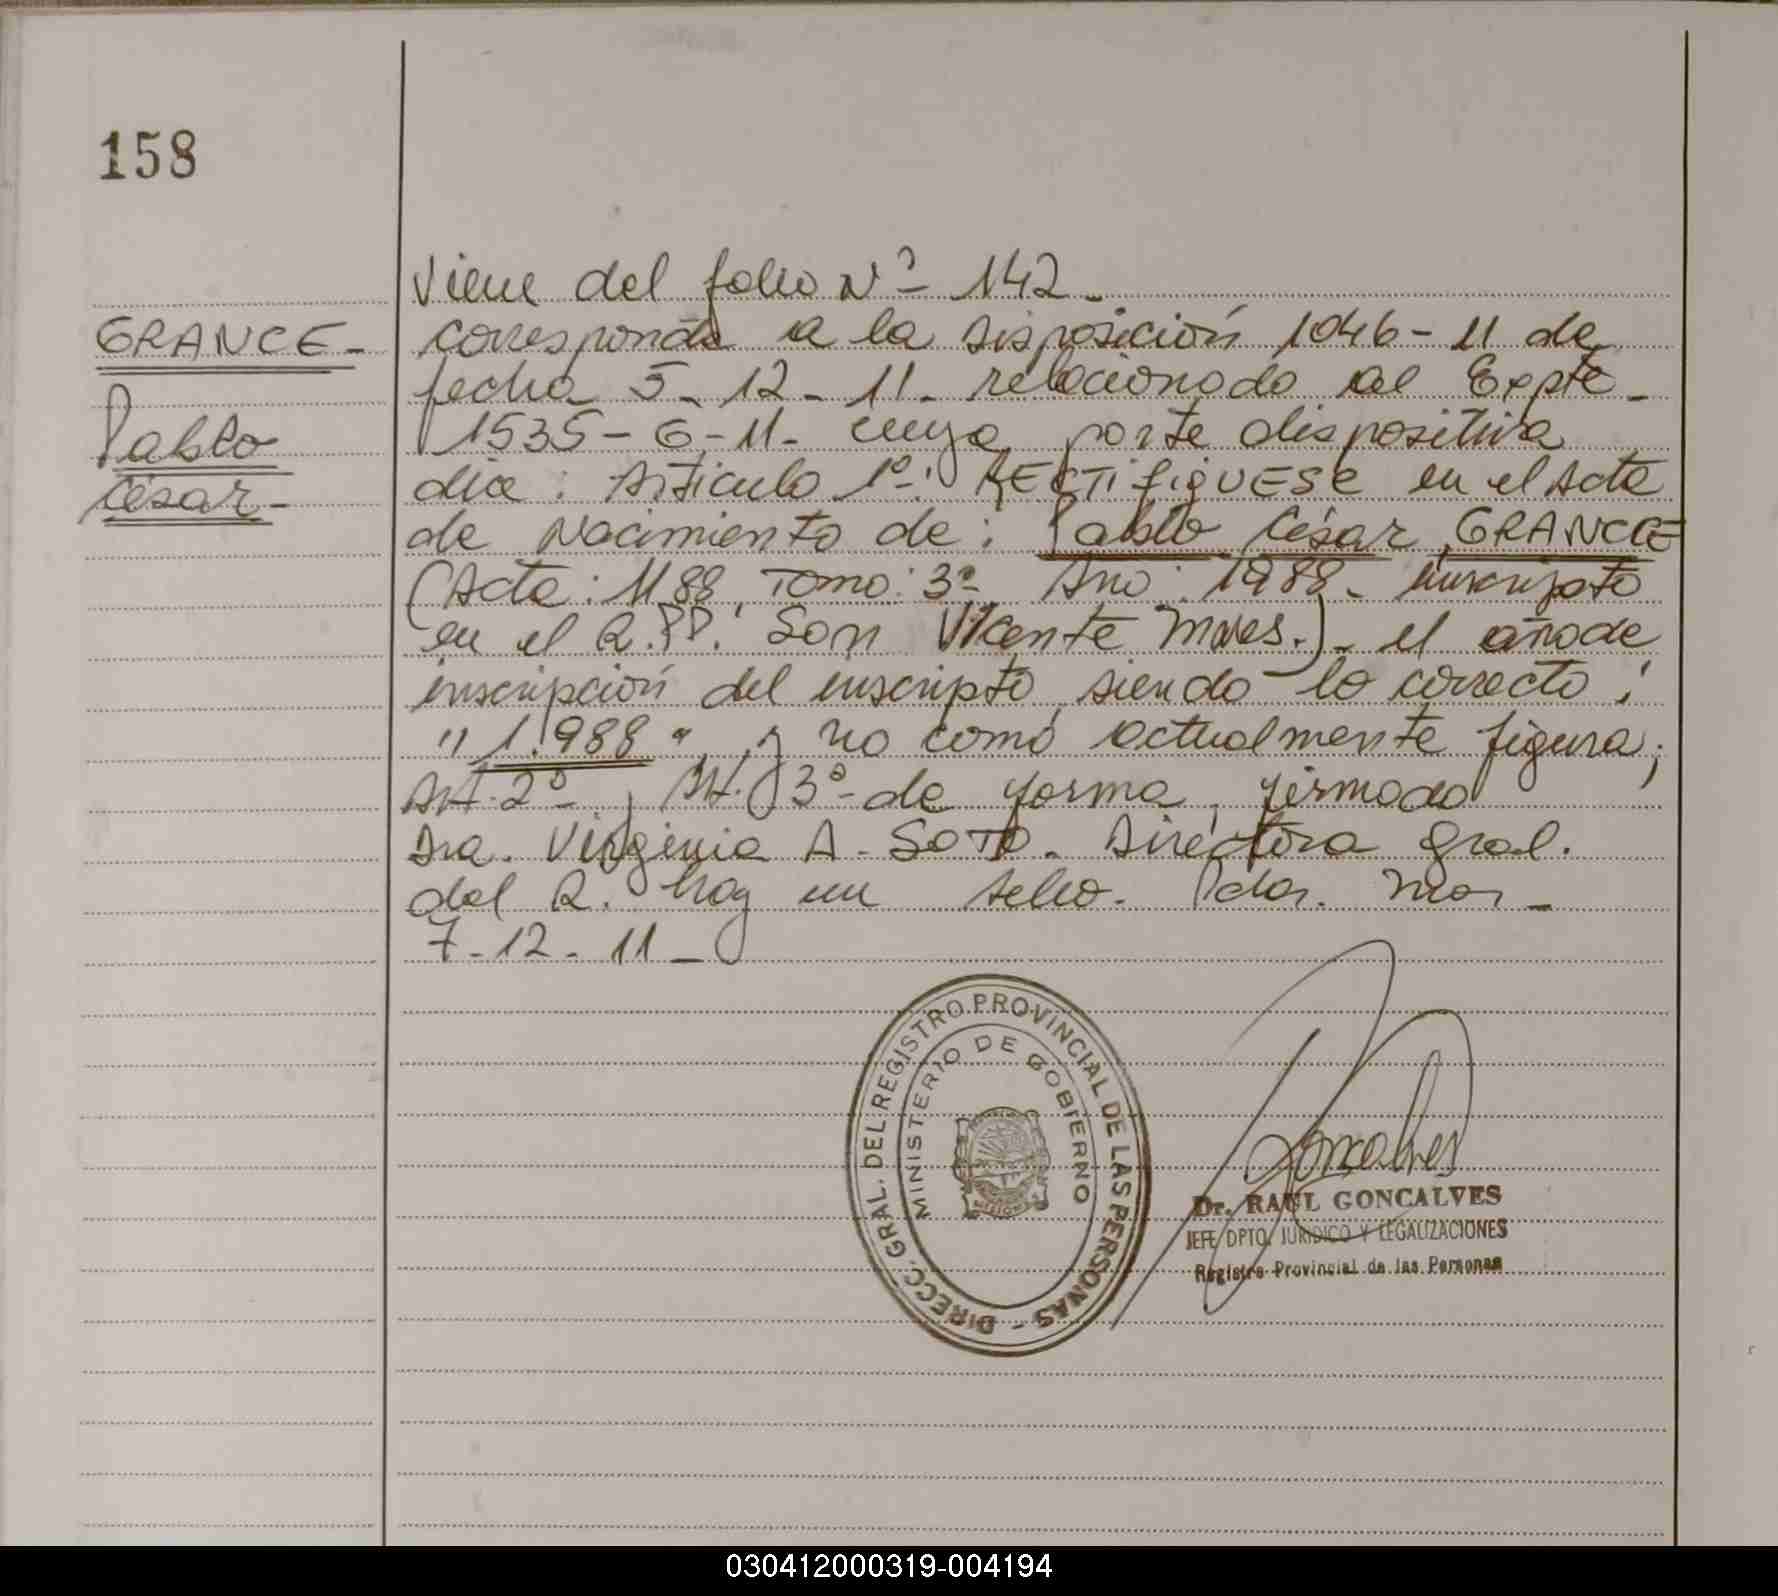 158
GRANCE-
Pablo
César-
Viene del folio Nº 142-
corresponde a la disposición 1046-11 de
fecha 5-12-11- relacionado al Expte-
1535-G-11- cuya parte dispositiva
dice: Artículo 1º: RECTIFIQUESE en el Acta
de Nacimiento de: Pablo César GRANCE
(Acta: 1188, Tomo: 3º Año: 1988- inscripto
en el R.PP. San Vicente Mnes.)- el año de
inscripción del inscripto, siendo lo correcto:
"1.988", y no como actualmente figura;
Art. 2º y Art. 3º- de forma, firmado
Dra. Virginia A. SOTO. Directora Gral.
del R. hay un sello. Pdas. Mnes-
7-12-11-
DIRECC. GRAL. DEL REGISTRO PROVINCIAL DE LAS PERSONAS -
MINISTERIO DE GOBIERNO
MISIONES
Goncalves
Dr. RAUL GONCALVES
JEFE DPTO. JURIDICO Y LEGALIZACIONES
Registro Provincial de las Personas
030412000319-004194